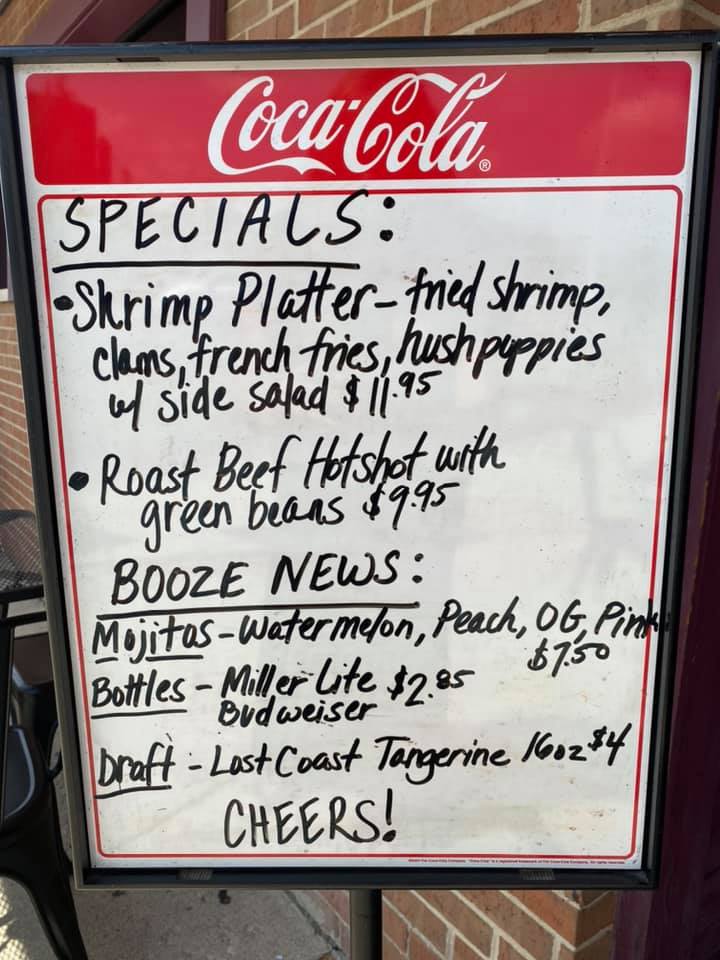 Coca-Cola®
SPECIALS:
• Shrimp Platter - fried shrimp,
clams, french fries, hushpuppies
w/ side salad $11.95
• Roast Beef Hotshot with
green beans $9.95
BOOZE NEWS:
Mojitos - Watermelon, Peach, OG, Pink
$7.50
Bottles - Miller Lite $2.85
Budweiser
Draft - Lost Coast Tangerine 16oz $4
CHEERS!